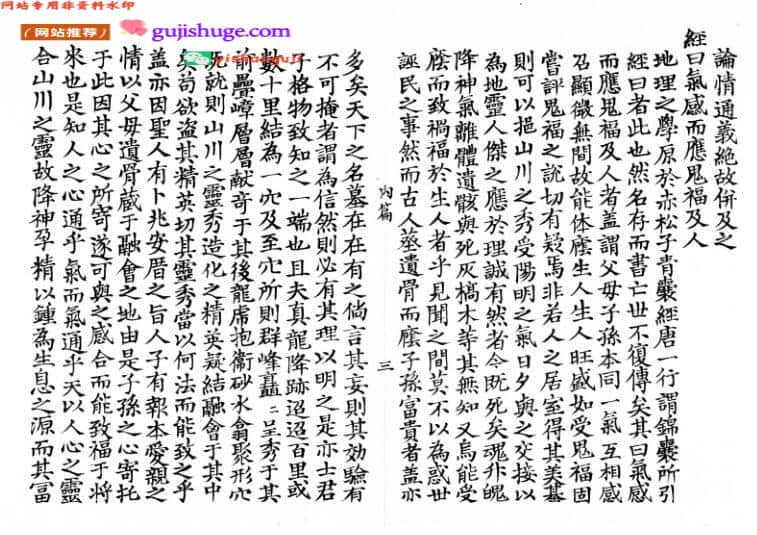 网站专用非资料水印
(网站推荐)
gujishuge.com
yishanguji
論情通義絶故併及之
經曰氣感而應鬼福及人
地理之學原於赤松子青囊經唐一行謂錦囊所引
經曰者此也然名存而書亡世不復傳矣其曰氣感
而應鬼福及人者盖謂父母子孫本同一氣互相感
召顯微無間故能体廕生人生人旺盛如受鬼福固
嘗評鬼福之説切有疑焉非若人之居室得其美基
則可以挹山川之秀受陽明之氣日夕與之交接以
為地靈人傑之應於理誠有然者今既死矣魂升魄
降神氣離體遺骸與死灰槁木等其無知又烏能受
廕而致禍福於生人者乎見聞之間莫不以為惑世
誣民之事然而古人塟遺骨而廕子孫富貴者盖亦
內篇
三
多矣天下之名墓在在有之倘言其妄則其効驗有
不可掩者謂為信然則必有其理以明之是亦士君
子格物致知之一端也且夫真龍降跡迢迢百里或
數十里結為一穴及至穴所則群峰矗二呈秀于其
前疊嶂層層献奇于其後龍虎抱衛砂水翕聚形穴
既就則山川之靈秀造化之精英凝結融會于其中
矣苟欲盗其精英切其靈秀當以何法而能致之乎
盖亦因聖人有卜兆安厝之旨人子有報本愛親之
情以父母遺骨蔵于融會之地由是子孫之心寄托
于此因其心之所寄遂可與之感合而能致福于將
來也是知人之心通乎氣而氣通乎天以人心之靈
合山川之靈故降神孕精以鍾為生息之源而其富